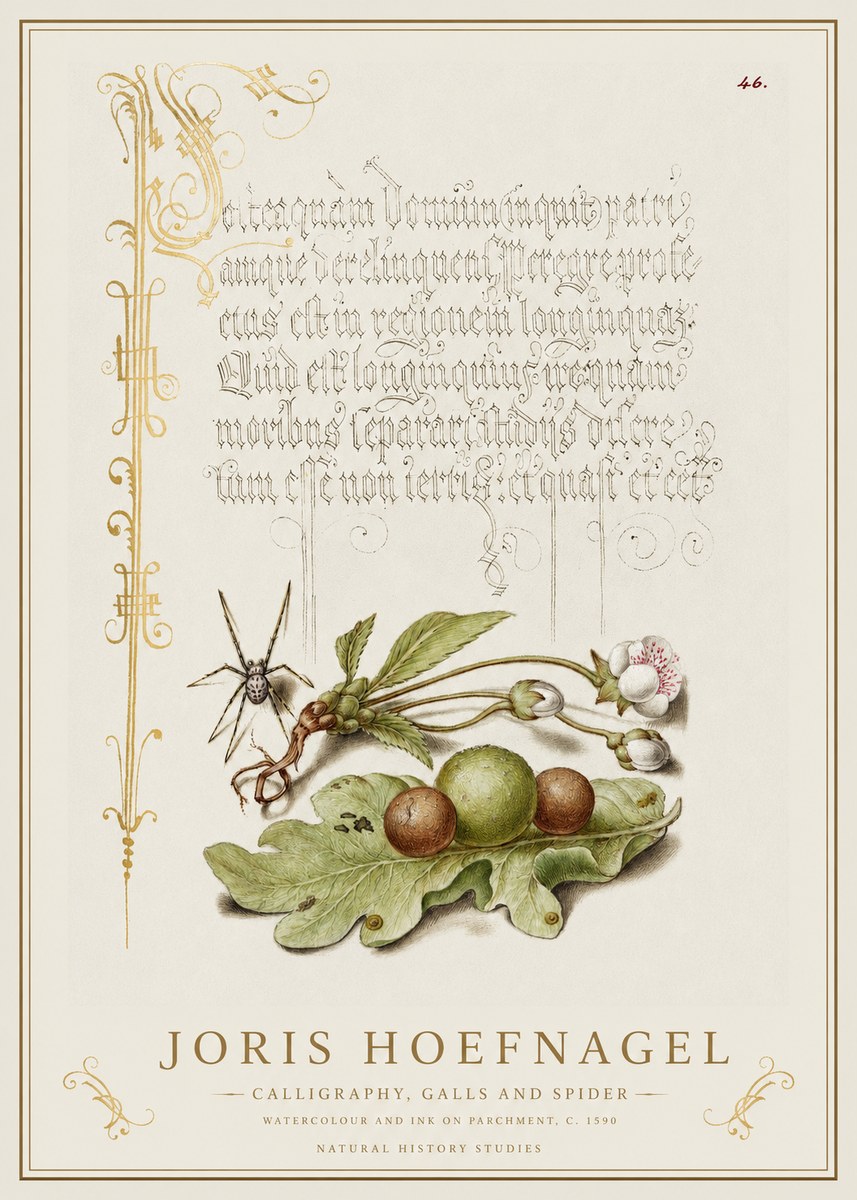 46.
Pelteaquàm Dominum (inquit) patri,
amque derelinquens Peregre profe-
ctus est in regionem longinquaz.
Quid est longinquius, quequam
moribus separari, studijs discre,
tum esse non terris: et quasi et cet
JORIS HOEFNAGEL
CALLIGRAPHY, GALLS AND SPIDER
WATERCOLOUR AND INK ON PARCHMENT, C. 1590
NATURAL HISTORY STUDIES